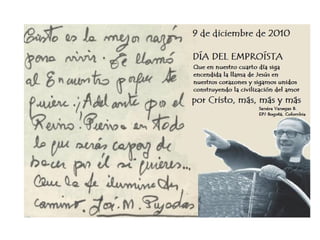 Cristo es la mejor razón
para vivir. Te llamó
al Encuentro porque te
quiere. ¡Adelante por el
Reino. Piensa en todo
lo que serás capaz de
hacer por él si quieres...
Que la fe ilumine tu
camino. José. M. Pujadas
9 de diciembre de 2010
DÍA DEL EMPROÍSTA
Que en nuestro cuarto día siga
encendida la llama de Jesús en
nuestros corazones y sigamos unidos
construyendo la civilización del amor
por Cristo, más, más y más
Sandra Vanegas B.
EPJ Bogotá, Colombia